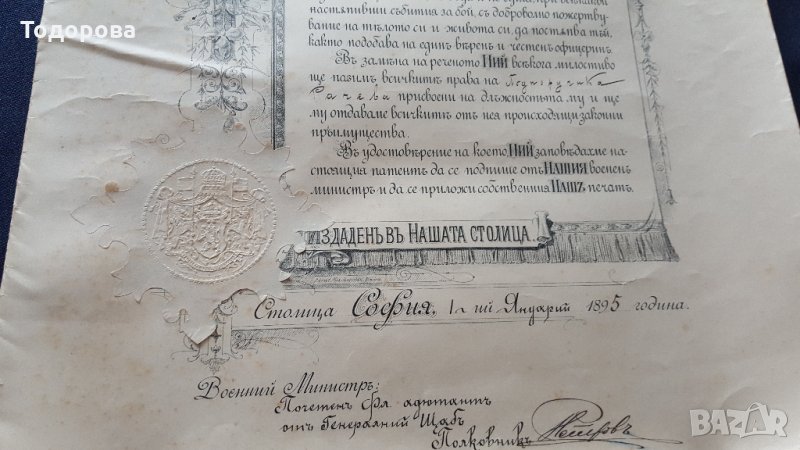 Тодорова
настѫпивши събития за бой, съ доброволно пожертву-
вание на тѣлото си и живота си, да постѫпва тъй,
както подобава на единъ вѣренъ и честенъ офицеринъ.
Въ замѣна на реченото НИЙ всѣкога милостиво
ще пазимъ всичкитѣ права на Подпоручика
присвоени на длъжностьта му и ще
му отдаваме всичкитѣ отъ нея происходящи законни
прѣимущества.
Въ удостовѣрение на което НИЙ заповѣдахме на-
стоящия патентъ да се подпише отъ НАШИЯ военен
министръ и да се приложи собственния НАШЪ печатъ.
ИЗДАДЕНЪ ВЪ НАШАТА СТОЛИЦА.
Столица София, 1-ий Януарий 1895 година.
Военний Министръ:
Почетенъ Фл. адютантъ
отъ Генералний Щабъ
Полковникъ Петровъ
BAZAR
bg